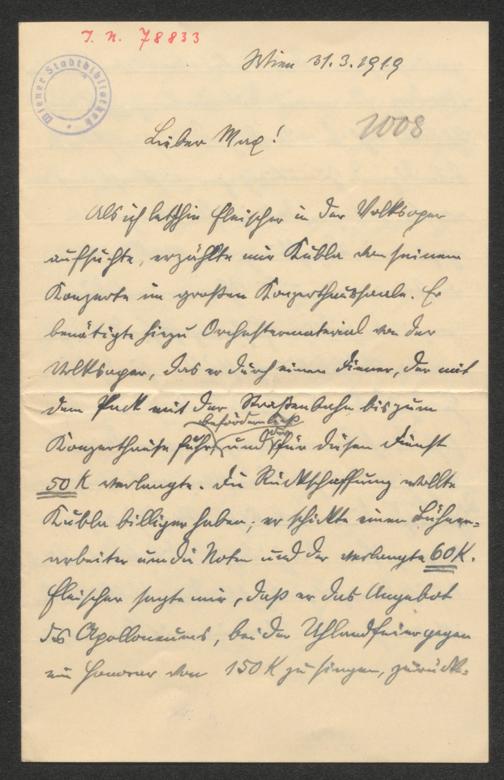 I. N. 78833
Wiener Stadtbibliothek
Wien 31.3.1919
1008
Lieber Max!
Als ich letzthin Fleischer in der Volksoper
aufsuchte, erzählte mir Kubla von seinem
Konzerte im großen Konzerthaussaale. Er
benötigte hiezu Orchestermaterial von der
Volksoper, das er durch einen Diener, der mit
dem Pack mit der Straßenbahn bis zum
befördern ließ
Konzerthause fuhr, und der für diesen Dienst
50 K verlangte. Die Rückschaffung wollte
Kubla billiger haben; er schickte einen Bühnen=
arbeiter um die Noten und der verlangte 60 K.
Fleischer sagte mir, daß er das Angebot
des Apolloneums, bei der Uhlandfeier gegen
ein Honorar von 150 K zu singen, zurück=